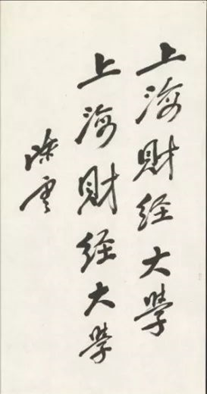 上海财经大學
上海财经大学
陈云